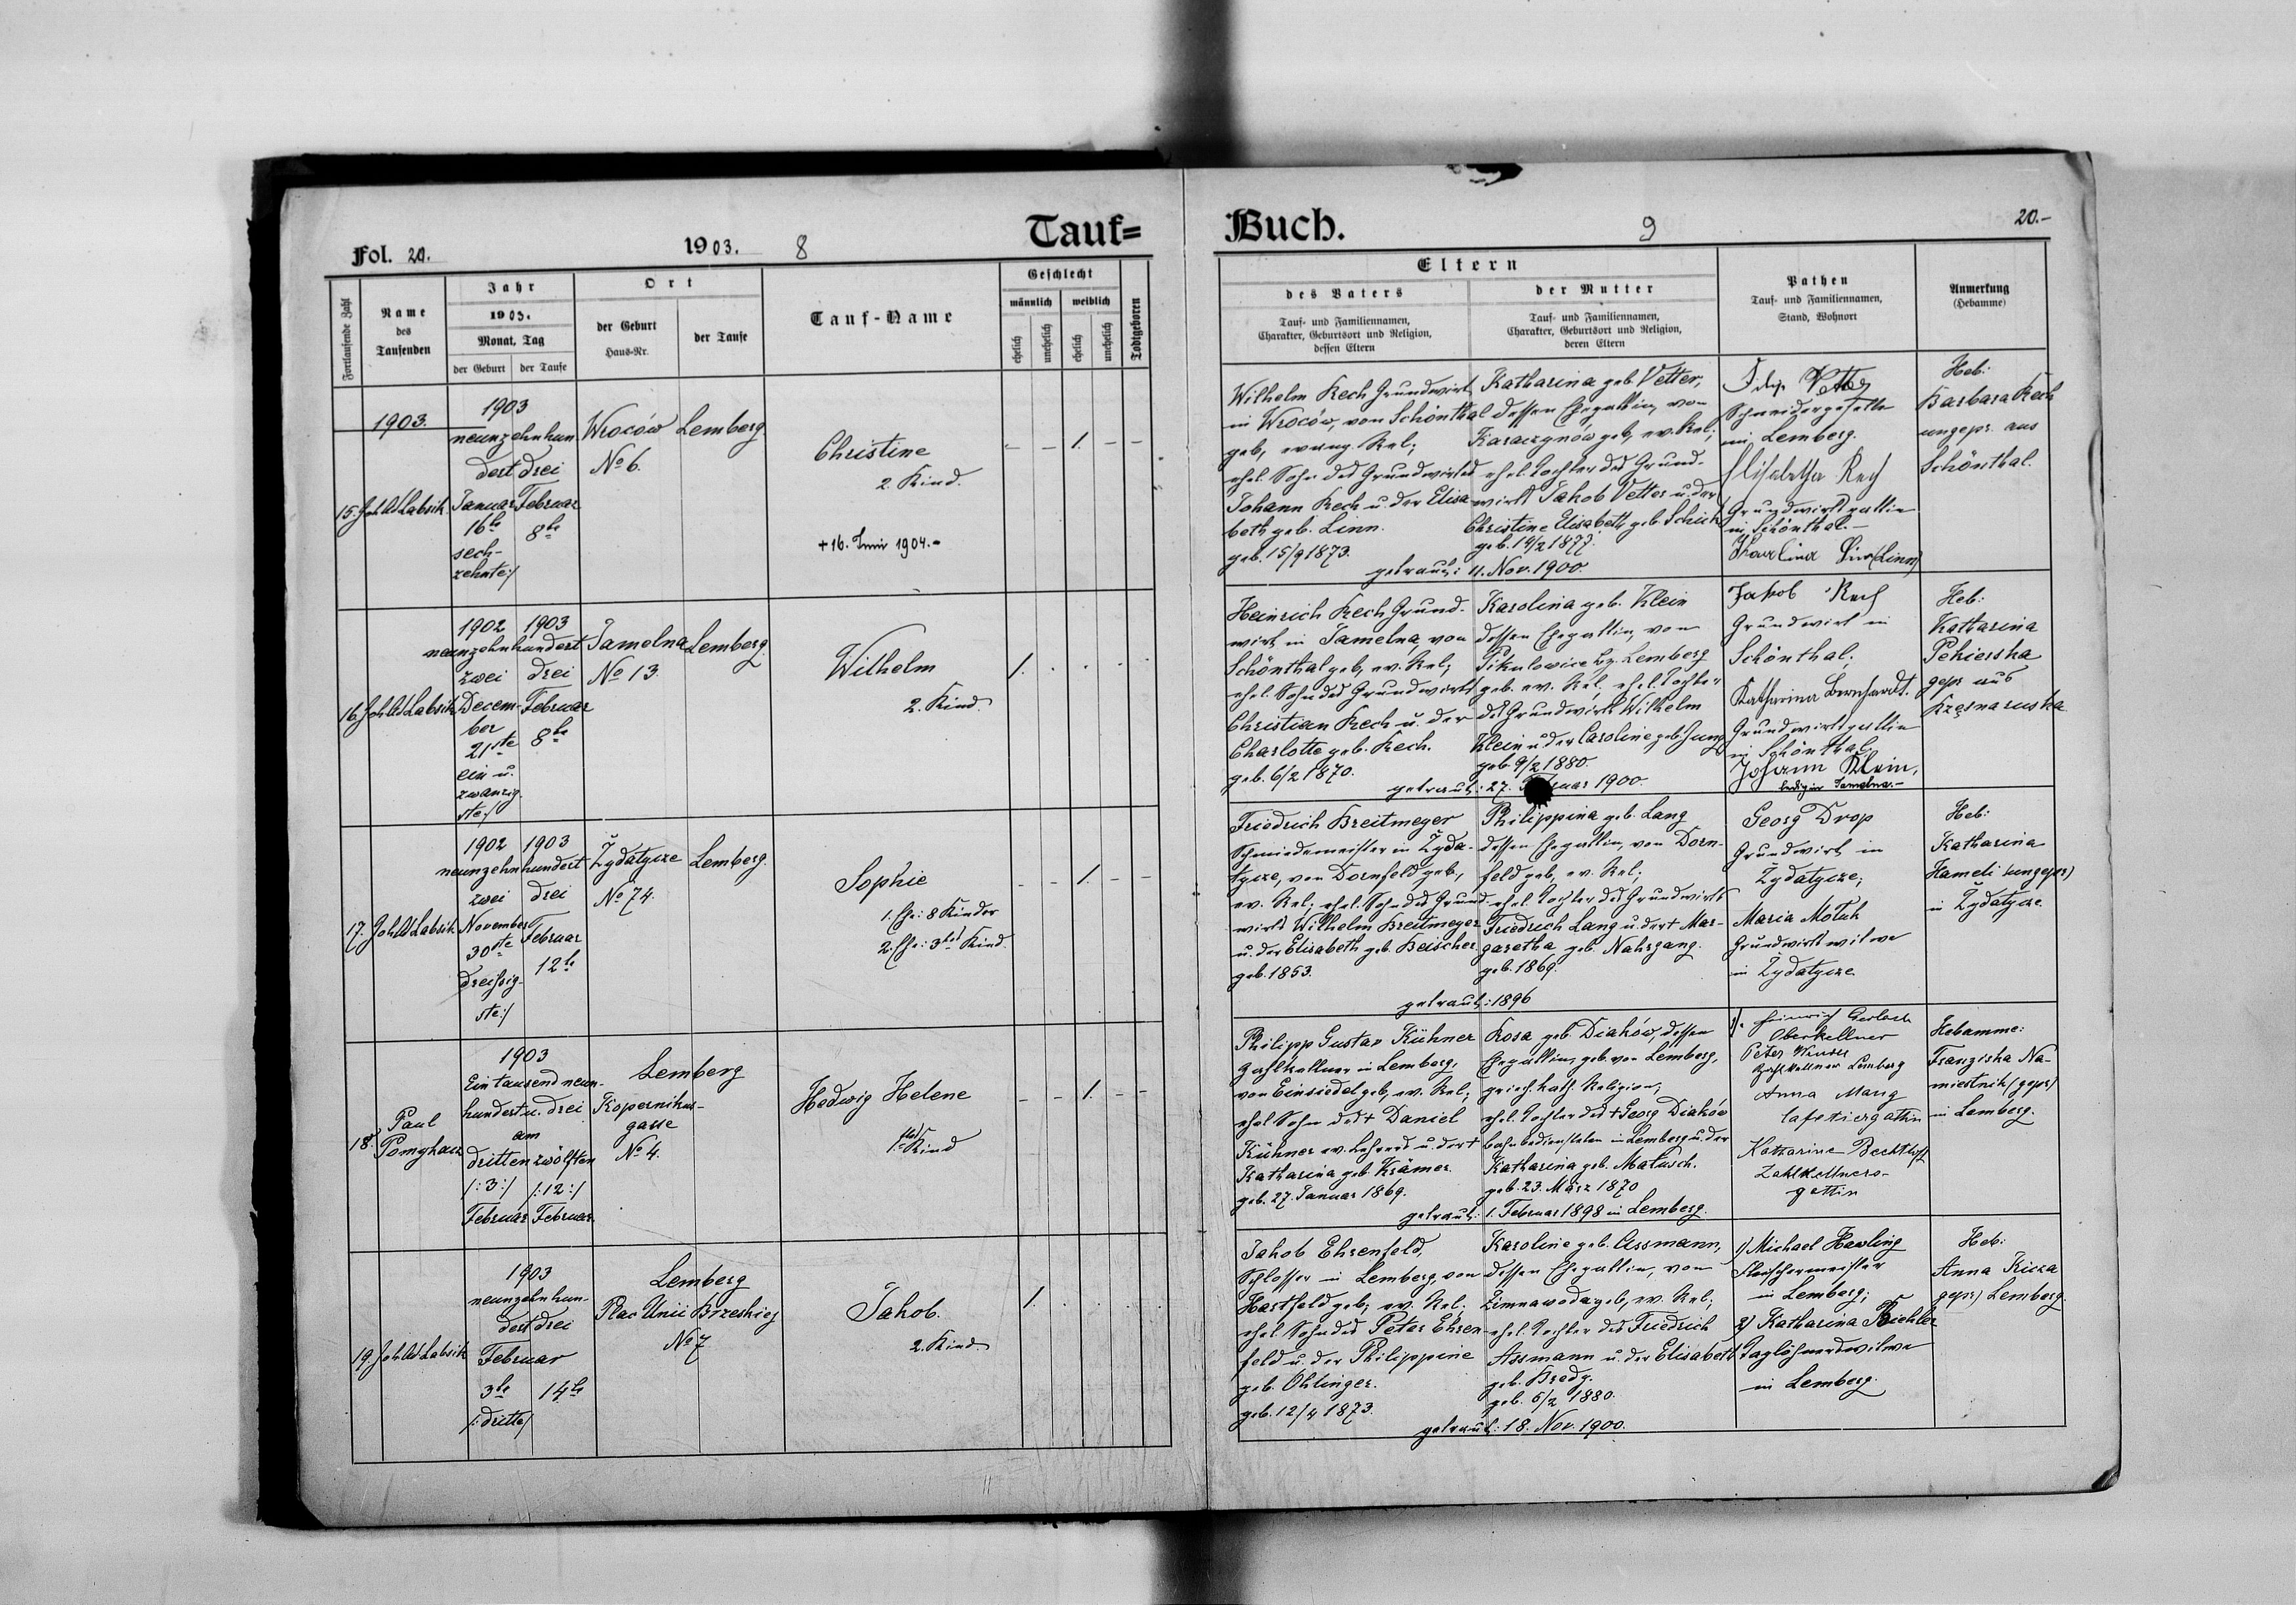 Fol. 20.
1903.
8
Tauf=
Fortlaufende Zahl
Name
des
Taufenden
Jahr
1903.
Monat, Tag
der Geburt
der Taufe
Ort
der Geburt
Haus-Nr.
der Taufe
Tauf-Name
Geschlecht
männlich
weiblich
ehelich
unehelich
ehelich
unehelich
Todtgeboren
1903.
15. Joh. Ad. Labsik
1903
neunzehnhun
dert drei
Januar Februar
16te 8te
sech-
zehnte:/
Wroców Lemberg.
No 6.
Christine
2. Kind.
+ 16. Juni 1904.-
- - 1. - -
16. Joh. Ad. Labsik
1902 1903
neunzehnhundert
zwei drei
Decem- Februar
ber
21ste 8te
ein u.
zwanzig-
ste:/
Jamelna Lemberg.
No 13.
Wilhelm
2. Kind.
1. . . . .
17. Joh. Ad. Labsik
1902 1903
neunzehnhundert
zwei drei
November Februar
30ste 12te
dreißig-
ste:/
Żydatycze Lemberg.
No 74.
Sophie
1. Ehe: 8 Kinder
2. Ehe: 3tes Kind.
- - 1. - -
18. Paul
Pomykacz
1903
Ein tausend neun-
hundert u. drei
am
dritten zwölften
/:3:/ /:12:/
Februar Februar
Lemberg
Kopernikus-
gasse
No 4.
Hedwig Helene
1tes Kind
- - 1. - -
19. Joh. Ad. Labsik
1903
neunzehnhun-
dert drei
Februar
3te 14te
/:dritte/
Lemberg
Plac Unii Brzeskiej
No 7
Jakob.
2. Kind.
1. . . . .
Buch.
9
20.-
Eltern
des Vaters
Tauf- und Familiennamen,
Charakter, Geburtsort und Religion,
dessen Eltern
der Mutter
Tauf- und Familiennamen,
Charakter, Geburtsort und Religion,
deren Eltern
Pathen
Tauf- und Familiennamen,
Stand, Wohnort
Anmerkung
(Hebamme)
Wilhelm Kech Grundwirt
in Wroców, von Schönthal
geb., evang. Rel.;
ehel. Sohn des Grundwirtes
Johann Kech u. der Elisa-
beth geb. Linn.
geb. 15/9 1873.
Katharina geb. Vetter,
dessen Ehegattin, von
Karaczynów geb., ev. Rel.;
ehel. Tochter des Grund-
wirts Jakob Vetter u. der
Christine Elisabeth geb. Schick
geb. 14/2 1877.
getraut: 11. Nov. 1900.
Filip Vetter
Schneidergeselle
in Lemberg.
Elisabetha Kech
Grundwirtsgattin
in Schönthal.-
Karolina (Linn)
Heb:
Barbara Kech
ungepr. aus
Schönthal.
Heinrich Kech Grund-
wirt in Jamelna, von
Schönthal geb., ev. Rel.;
ehel. Sohn des Grundwirts
Christian Kech u. der
Charlotte geb. Kech.
geb. 6/2 1870.
Karolina geb. Klein
dessen Ehegattin, von
Pikulowice bz. Lemberg
geb. ev. Rel., ehel. Tochter
des Grundwirts Wilhelm
Klein u. der Caroline geb. Jung
geb. 9/2 1880.
getraut: 27. 1900.
Jakob Kech
Grundwirt in
Schönthal;
Katharina Bernhardt.
Grundwirtsgattin
in Schönthal
Johann Klein,
ledig in Jamelna.-
Heb:
Katharina
Pekierska
gepr. aus
Krzęsna ruska
Friedrich Breitmeyer
Schmiedemeister in Żyda-
tycze, von Dornfeld geb.,
ev. Rel.; ehel. Sohn des Grund-
wirts Wilhelm Breitmeyer
u. der Elisabeth geb. Keischer
geb. 1853.
Philippina geb. Lang
dessen Ehegattin, von Dorn-
feld geb., ev. Rel.;
ehel. Tochter des Grundwirts
Friedrich Lang u. der + Mar-
garetha geb. Nahrgang.
geb. 1869.
getraut: 1896
Georg Drop
Grundwirt in
Żydatycze;
Maria Motuk
Grundwirtswitwe
in Żydatycze
Heb:
Katharina
Hameli (ungepr.)
in Żydatycze
Philipp Gustav Kühner
Zahlkellner in Lemberg,
von Einsiedel geb., ev. Rel.;
ehel. Sohn des + Daniel
Kühner ev. Lehrers u. der +
Katharina geb. Krämer.
geb. 27. Januar 1869.
Rosa geb. Diaków, dessen
Ehegattin, geb. von Lemberg,
griech. kath. Religion;
ehel. Tochter des + Georg Diaków
Bahnbediensteten in Lemberg u. der
Katharina geb. Matusch.
geb. 23. März 1870
getraut: 1. Februar 1898 in Lemberg.
Heinrich Gerlach
Oberkellner
Peter
Zahlkellner Lemberg
Anna Mang
Cafetiersgattin
Katharine Bechtloff
Zahlkellners-
gattin
Hebamme:
Franziska Na-
miestnik (gepr.)
in Lemberg.
Jakob Ehrenfeld,
Schlosser in Lemberg, von
Hartfeld geb., ev. Rel.;
ehel. Sohn des Peter Ehren-
feld u. der Philippine
geb. Ohlinger.
geb. 12/4 1873.
Karoline geb. Assmann,
dessen Ehegattin, von
Zimnawoda geb., ev. Rel.;
ehel. Tochter des Friedrich
Assmann u. der Elisabeth
geb. Bredy.
geb. 6/2 1880.
getraut: 18. Nov. 1900.
1) Michael Hawling
Fleischermeister
in Lemberg;
2) Katharina Bichler
Taglöhnerswitwe
in Lemberg.
Heb:
Anna Kicza
gepr.) Lemberg.